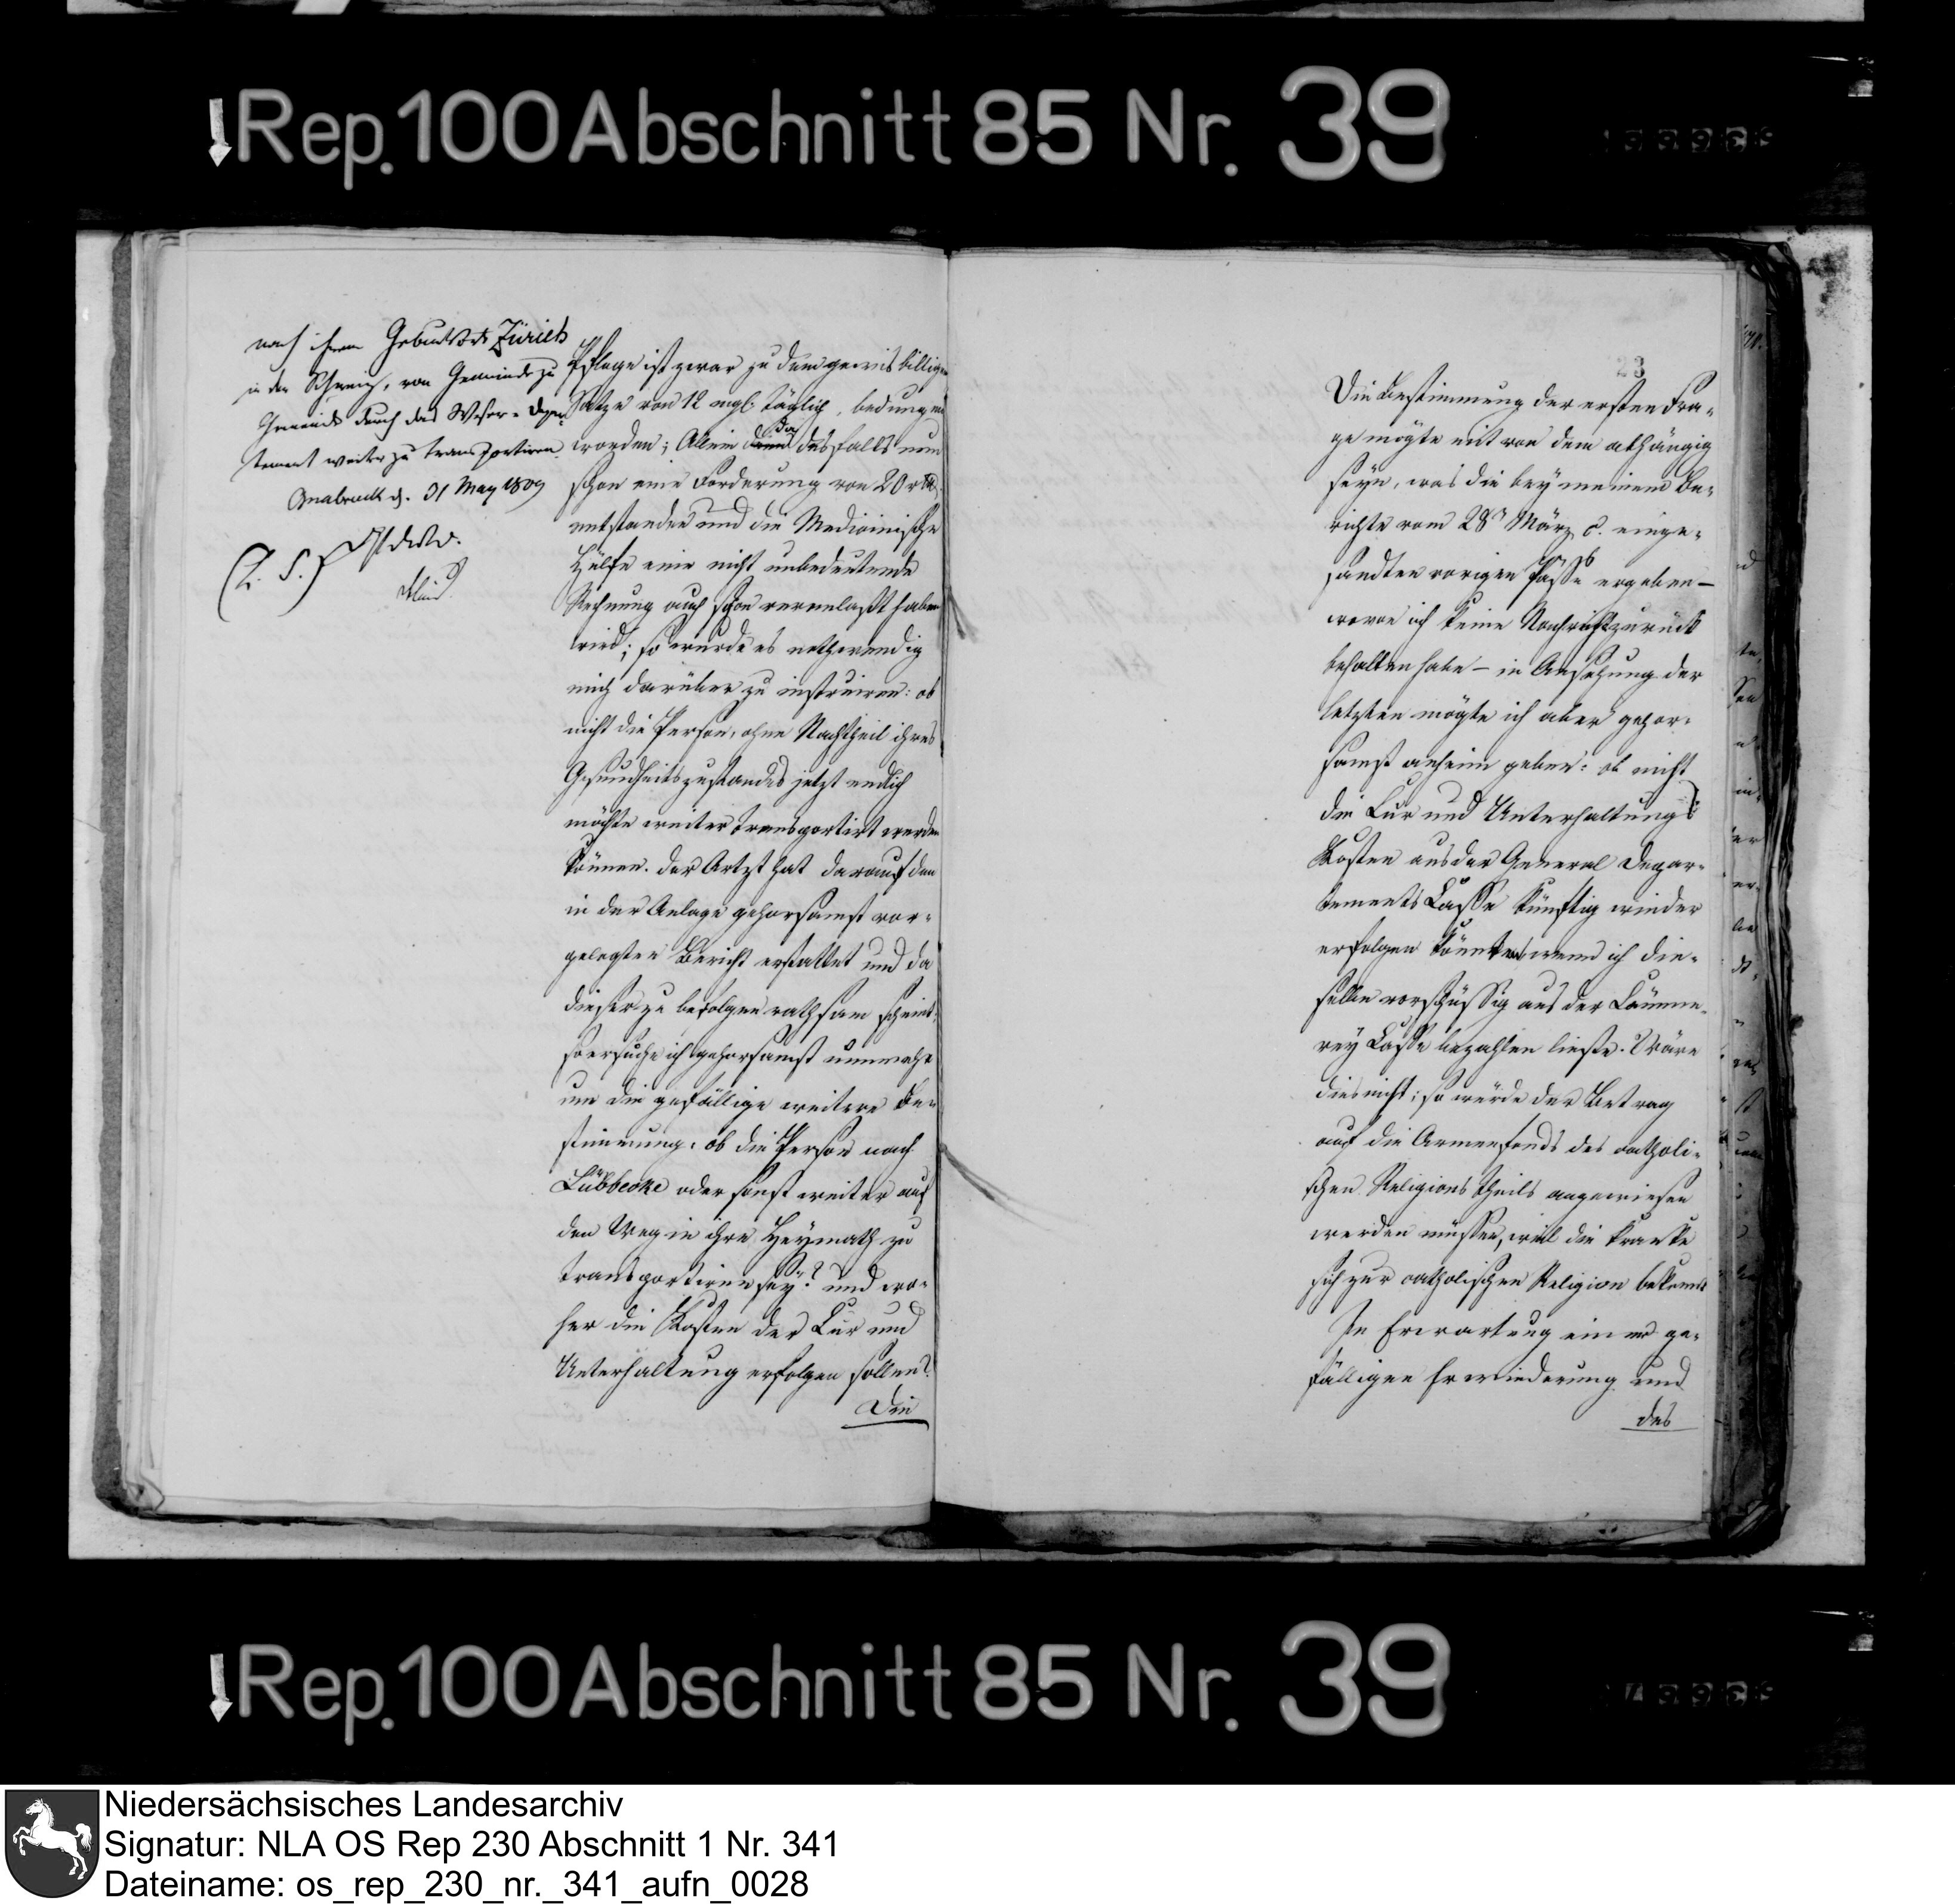 Rep. 100 Abschnitt 85 Nr. 39
nach ihrem Geburtsort Zürich
in der Schweiz, von Gemeinde zu
Gemeinde durch das Weser-Depar-
tement weiter zu transportiren.
Osnabruck d. 31 May 1809
(L. S.)
Pflege ist zwar zu dem gewis billigen
Satze von 12 mgl. täglich, bedungen
worden; Allein da desfalls nun
schon eine Forderung von 20 rthl.
entstanden und die Medicinische
Hülfe eine nicht unbedeutende
Rechnung auch schon veranlaßt haben
wird; so wurde es nothwendig
mich darüber zu instruiren: ob
nicht die Person, ohne Nachtheil ihres
Gesundheitszustandes jetzt endlich
möchte weiter transportirt werden
können. Der Artzt hat darauf den
in der Anlage gehorsamst vor-
gelegten Bericht erstattet und da
dieser zu befolgen rathsam scheint,
so ersuche ich gehorsamst nunmehr
um die gefällige weitere Be-
stimmung: ob die Person nach
Lübbecke oder sonst weiter auf
den Weg in ihre Heymath zu
transportiren sey? und wo-
her die Kosten der Cur und
Unterhaltung erfolgen sollen?
Die
23
Die Bestimmung der ersten Fra-
ge mögte mit von dem abhängig
seyn, was die bey meinem Be-
richte vom 28n März c. einge-
sandten vorigen Pässe ergeben –
wovon ich keine Nachricht zurück
behalten habe – in Ansehung der
letzten mögte ich aber gehor-
samst anheim geben: ob nicht
die Cur und Unterhaltungs
Kosten aus der General Depar-
tements Casse künftig wieder
erfolgen könnten wenn ich die-
selbe vorschüssig aus der Cämme-
rey Casse bezahlen ließe. Wäre
dies nicht; so würde der Betrag
auf die Armenfonds des catholi-
schen Religions theils angewiesen
werden müssen, weil die Kranke
sich zur catholischen Religion bekennt
In Erwartung einer ge-
fälligen Erwiederung und
des
Rep. 100 Abschnitt 85 Nr. 39
Niedersächsisches Landesarchiv
Signatur: NLA OS Rep 230 Abschnitt 1 Nr. 341
Dateiname: os_rep_230_nr._341_aufn_0028